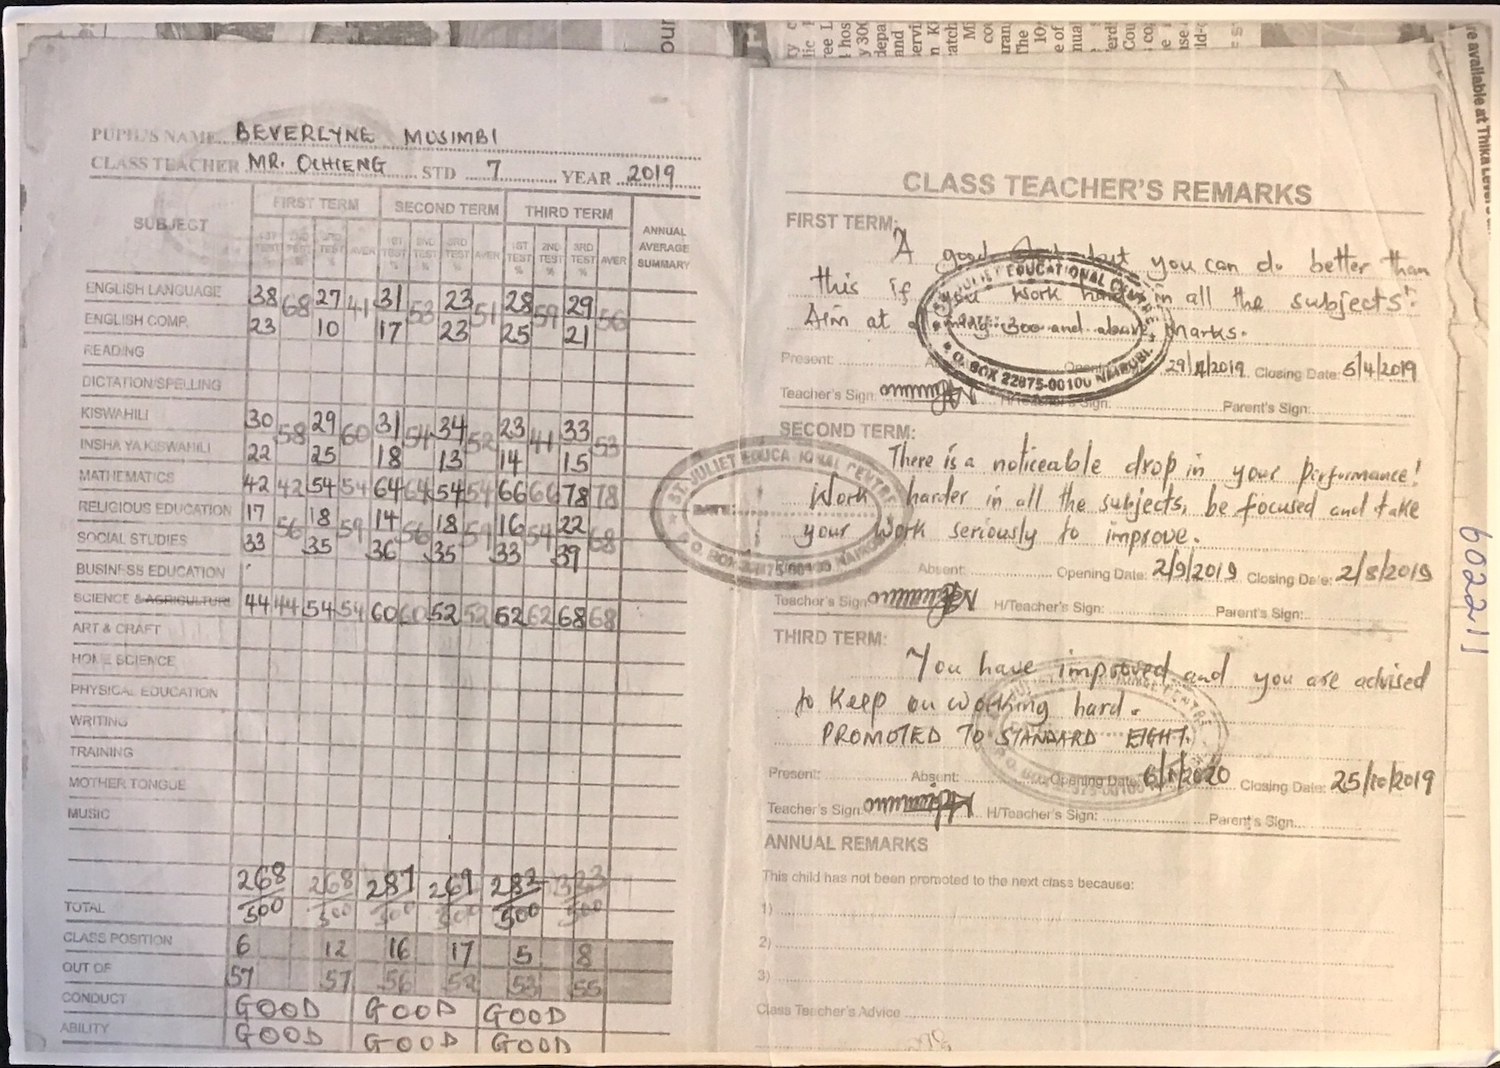 PUPIL'S NAME BEVERLYNE MUSIMBI
CLASS TEACHER MR. OCHIENG STD 7 YEAR 2019
SUBJECT FIRST TERM SECOND TERM THIRD TERM ANNUAL AVERAGE SUMMARY
1ST TEST % 2ND TEST % 3RD TEST % AVER 1ST TEST % 2ND TEST % 3RD TEST % AVER 1ST TEST % 2ND TEST % 3RD TEST % AVER
ENGLISH LANGUAGE 38 68 27 41 31 53 23 51 28 59 29 56
ENGLISH COMP. 23 10 17 23 25 21
READING
DICTATION/SPELLING
KISWAHILI 30 58 29 60 31 54 34 52 23 41 33 53
INSHA YA KISWAHILI 22 25 18 13 14 15
MATHEMATICS 42 42 54 54 64 64 54 54 66 66 78 78
RELIGIOUS EDUCATION 17 56 18 59 14 56 18 59 16 54 22 68
SOCIAL STUDIES 33 35 36 35 33 39
BUSINESS EDUCATION
SCIENCE & AGRICULTURE 44 44 54 54 60 60 52 52 62 62 68 68
ART & CRAFT
HOME SCIENCE
PHYSICAL EDUCATION
WRITING
TRAINING
MOTHER TONGUE
MUSIC
268 268 287 269 282 323
TOTAL 500 500 500 500 500 500
CLASS POSITION 6 12 16 17 5 8
OUT OF 57 57 56 53 55
CONDUCT GOOD GOOD GOOD
ABILITY GOOD GOOD GOOD
ST. JULIET EDUCATIONAL CENTRE
DATE:
P.O. BOX 22875-00100 NAIROBI
CLASS TEACHER'S REMARKS
FIRST TERM:
A good but you can do better than
this if you work hard in all the subjects!
Aim at 300 and above marks.
Present: Opening 29/ /2019 Closing Date: 5/4/2019
Teacher's Sign: H/Teacher's Sign: Parent's Sign:
ST. JULIET EDUCATIONAL CENTRE
P.O. BOX 22875-00100 NAIROBI
SECOND TERM:
There is a noticeable drop in your performance!
Work harder in all the subjects, be focused and take
your work seriously to improve.
Absent: Opening Date: 2/9/2019 Closing Date: 2/8/2019
Teacher's Sign: H/Teacher's Sign: Parent's Sign:
THIRD TERM:
You have improved and you are advised
to keep on working hard.
PROMOTED TO STANDARD EIGHT.
Present: Absent: Opening Date: 6/1/2020 Closing Date: 25/10/2019
Teacher's Sign: H/Teacher's Sign: Parent's Sign:
ANNUAL REMARKS
This child has not been promoted to the next class because:
1)
2)
3)
Class Teacher's Advice
602211
e available at Thika Level 5